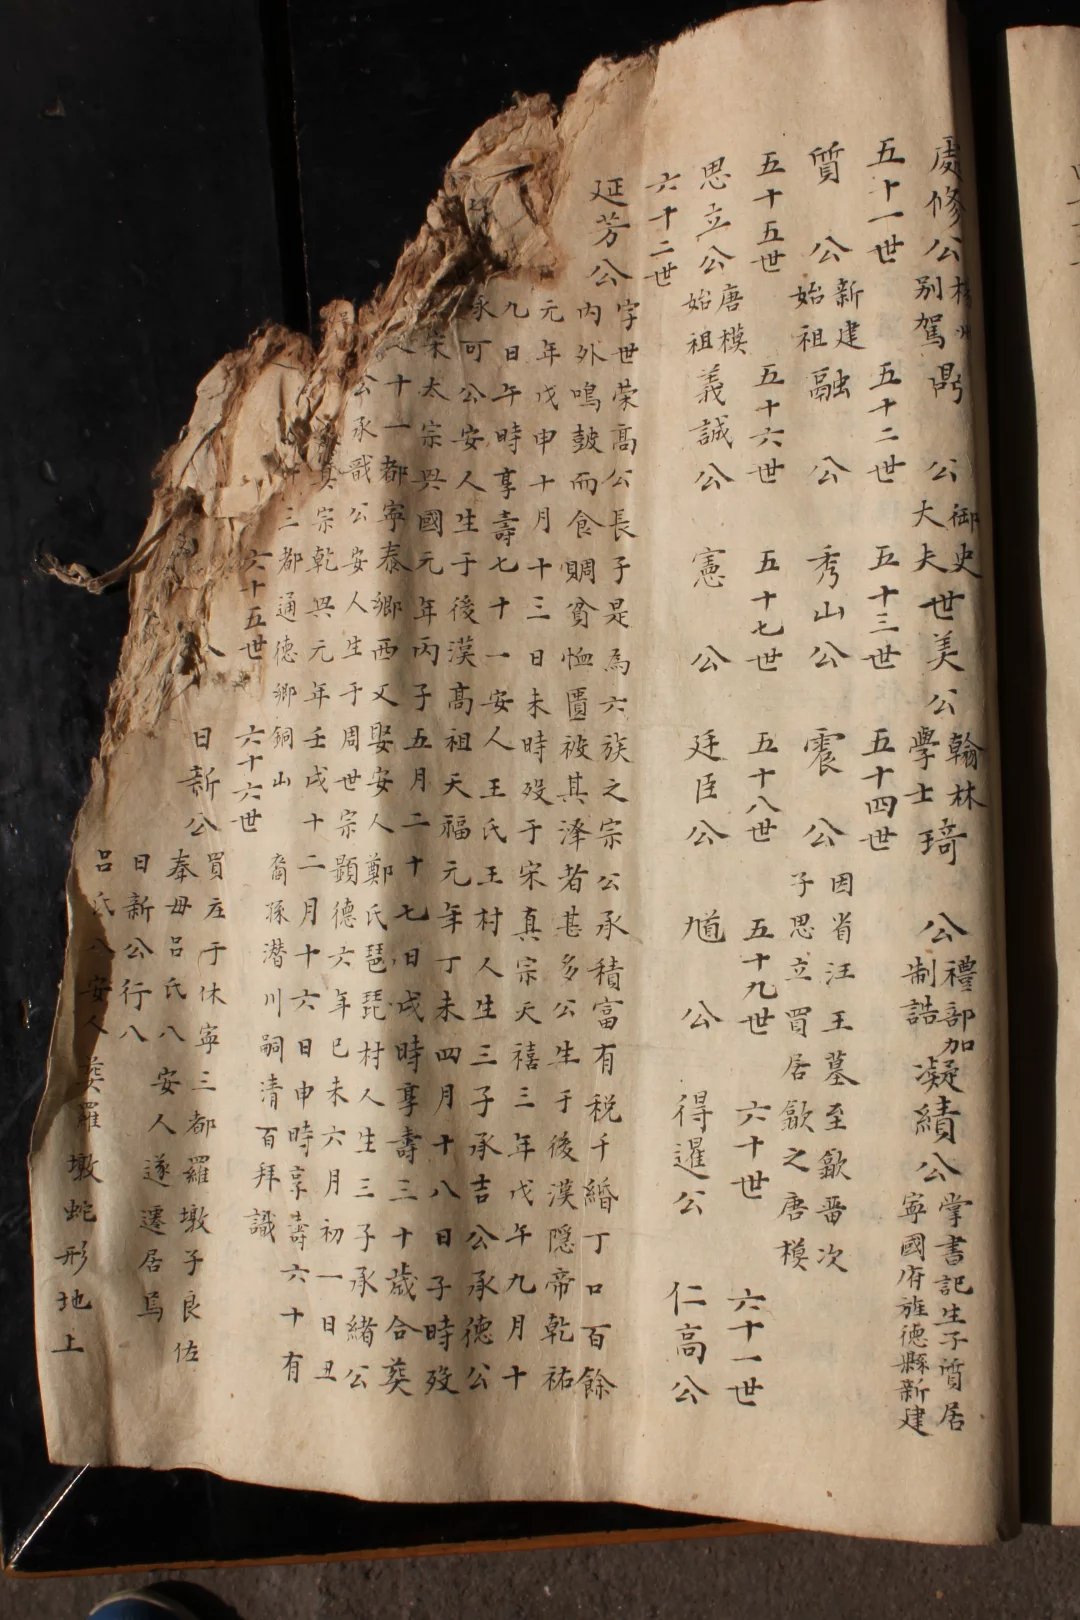 處修公 別駕 鼎 公 御史大夫 世美公 翰林學士 琦 公 禮部加制誥 凝績公 掌書記生子質居寧國府旌德縣新建
五十一世 五十二世 五十三世 五十四世
質 公 新建始祖 融 公 秀山公 震 公 因省汪王墓至歙晋次子思立買居歙之唐模
五十五世 五十六世 五十七世 五十八世 五十九世 六十世 六十一世
思立公 唐模始祖 義誠公 憲 公 廷臣公 馗 公 得暹公 仁高公
六十二世
延芳公 字世荣高公長子是為六族之宗公承積富有税千緍丁口百餘
内外鳴鼓而食賙貧恤匱被其澤者甚多公生于後漢隱帝乾祐
元年戊申十月十三日未時殁于宋真宗天禧三年戊午九月十
九日午時享壽七十一安人王氏王村人生三子承吉公承德公
承可公安人生于後漢高祖天福元年丁未四月十八日子時殁
宋太宗興國元年丙子五月二十七日戌時享壽三十歲合葬
十一都寧泰鄉西文娶安人鄭氏琵琶村人生三子承緒公
公承戬公安人生于周世宗顯德六年已未六月初一日丑
真宗乾興元年壬戌十二月十六日申時享壽六十有
三都通德鄉銅山 裔孫潜川嗣清百拜識
六十五世 六十六世
八 日新公 買庄于休寧三都羅墩子良佐奉母吕氏八安人遂遷居焉
日新公行八
吕氏八安人葬羅墩蛇形地上